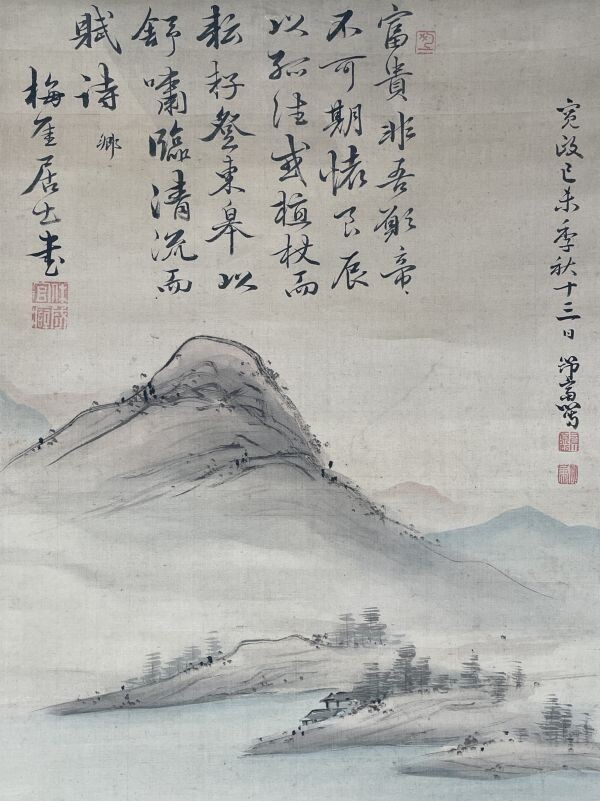 寛政己未季秋十三日 寫
富貴非吾願帝
不可期懷良辰
以孤往或植杖而
耘耔登東皋以
舒嘯臨清流而
賦詩 鄉
梅厓居士書